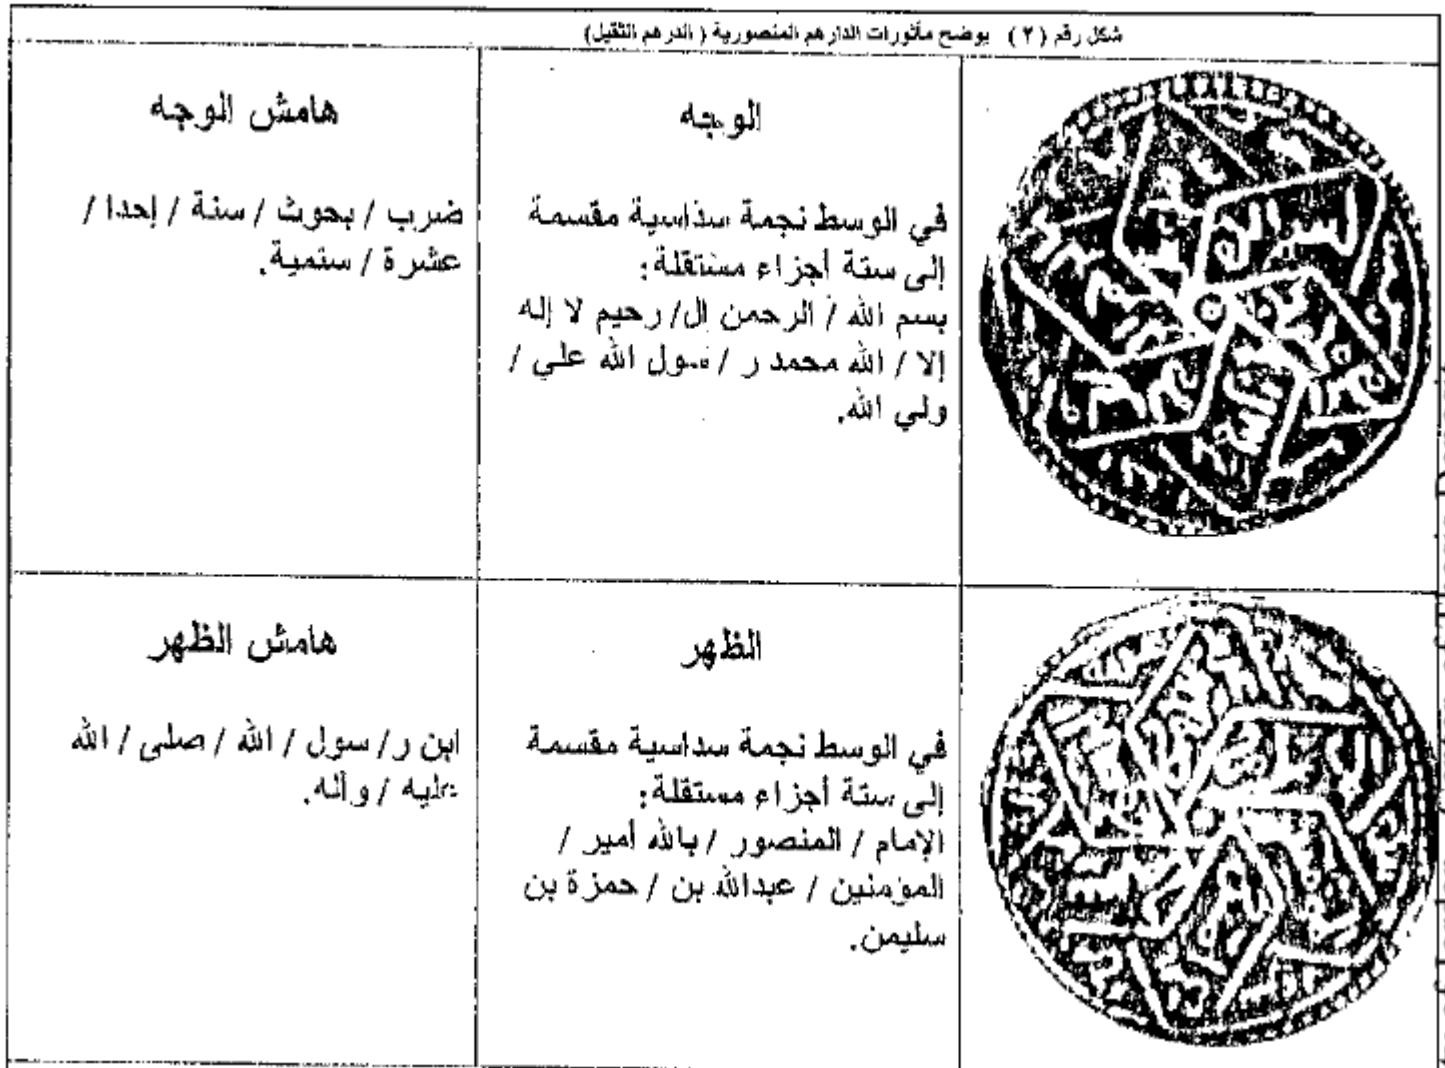 شكل رقم (٢) يوضح مأثورات الدارهم المنصورية (الدرهم الثقيل)
الوجه
في الوسط نجمة سداسية مقسمة
إلى ستة أجزاء مستقلة:
بسم الله / الرحمن ال/ رحيم لا إله
إلا / الله محمد ر / سول الله علي /
ولي الله.
هامش الوجه
ضرب / بحوث / سنة / إحدا /
عشرة / ستمية.
الظهر
في الوسط نجمة سداسية مقسمة
إلى ستة أجزاء مستقلة:
الإمام / المنصور / بالله أمير /
المؤمنين / عبدالله بن / حمزة بن
سليمن.
هامش الظهر
ابن ر/ سول / الله / صلى / الله
عليه / وآله.